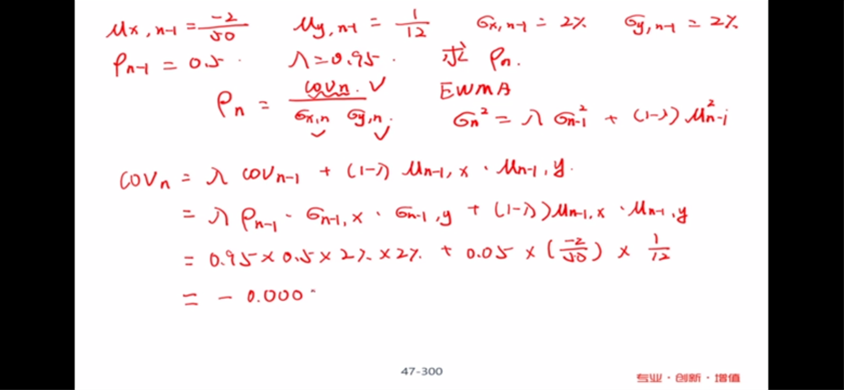 μx,n-1 = -2/50 μy,n-1 = 1/12 σx,n-1 = 2% σy,n-1 = 2%
ρn-1 = 0.5. λ = 0.95. 求 ρn.
ρn = covn. / σx,n σy,n. EWMA
σn² = λ σ²n-1 + (1-λ) μ²n-i
COVn = λ COVn-1 + (1-λ) μn-1, x · μn-1, y.
= λ ρn-1 · σn-1, x · σn-1, y + (1-λ) μn-1, x · μn-1, y
= 0.95 × 0.5 × 2% × 2% + 0.05 × (-2/50) × 1/12
= - 0.000
47-300
专业·创新·增值